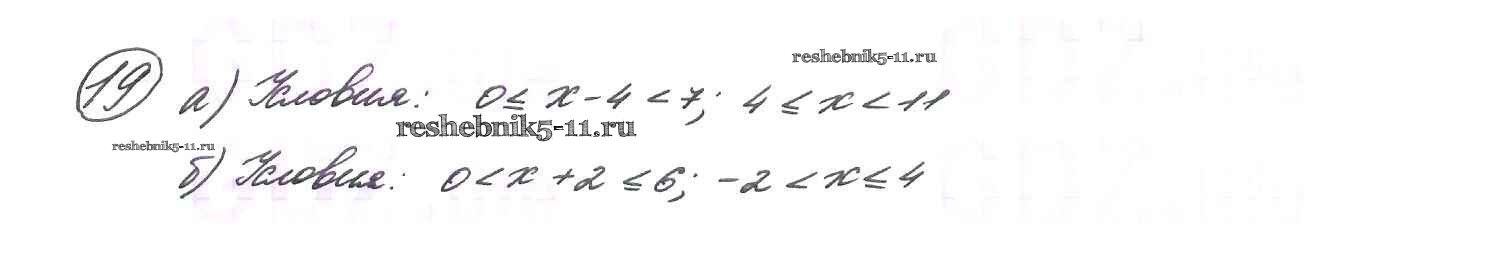 reshebnik5-11.ru
19 а) Условия: 0 ≤ x - 4 < 7; 4 ≤ x < 11
reshebnik5-11.ru
reshebnik5-11.ru
б) Условия: 0 < x + 2 ≤ 6; -2 < x ≤ 4